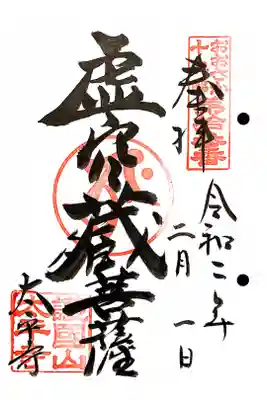 おおさか十三仏霊場
奉拝
令和二年
二月一日
虚空蔵菩薩
護国山
太平寺
太平寺